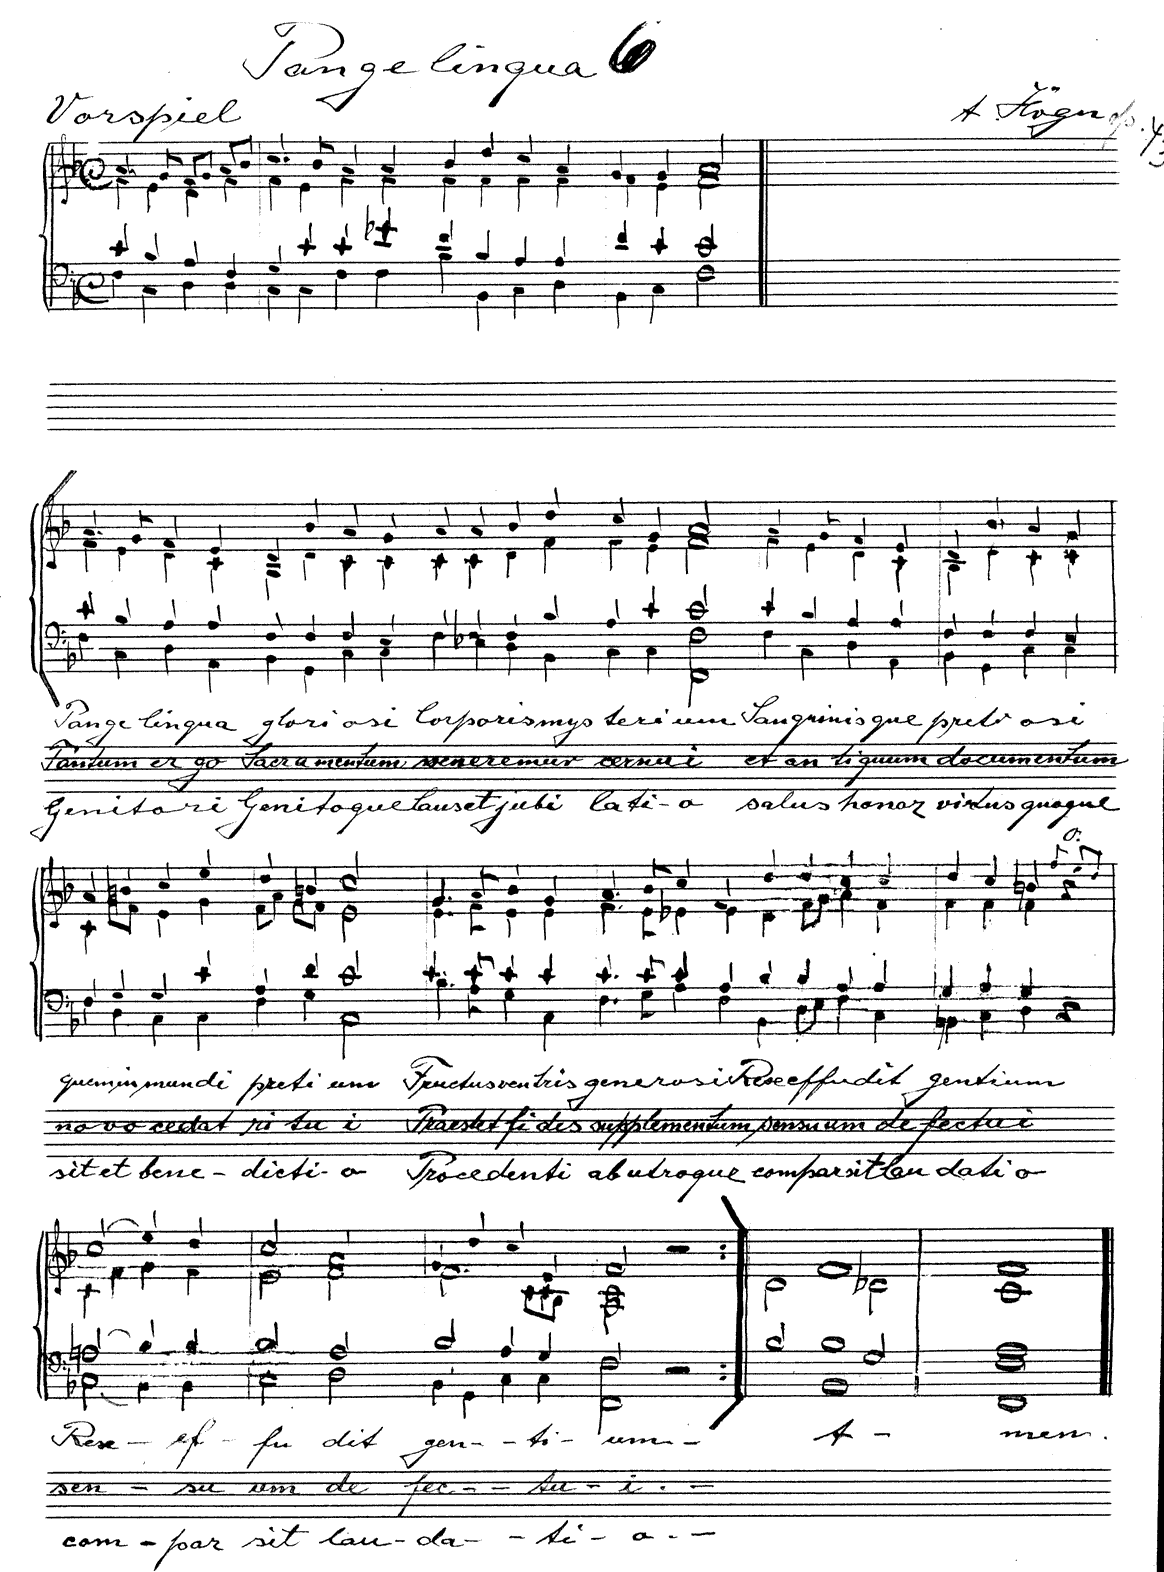 Pange lingua 6
Vorspiel
A. Högn op. 43
Pange lingua glori osi Corporis mys teri um Sanguinis que preti osi
Tantum er go Sacra mentum veneremur cernu i et an tiquum documentum
Genito ri Genitoque laus et jubi lati - o salus honor virtus quoque
quem in mundi preti um Fructus ventris generosi Rex effudit gentium
no vo cedat ri tu i Praestet fi des supplementum sensuum de fectu i
sit et bene - dicti - o Procedenti ab utroque compar sit lau dati o
Rex - ef - fu dit gen - - ti - um - A - men.
sen - su um de fec - - tu - i . -
com - par sit lau - da - - ti - o . -